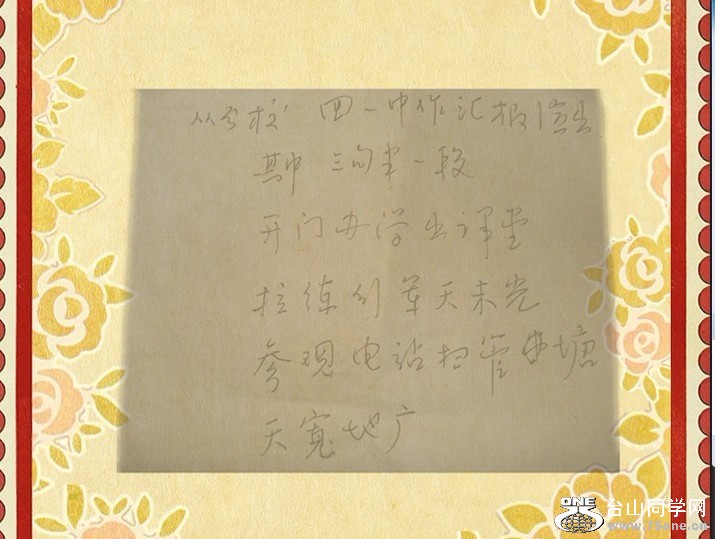 从分校 四一中作汇报演出
其中 三句半一段
开门办学出课堂
拉练行军天未光
参观电站扫管塘
天宽地广
ONE
台山同学网
www.75one.cn